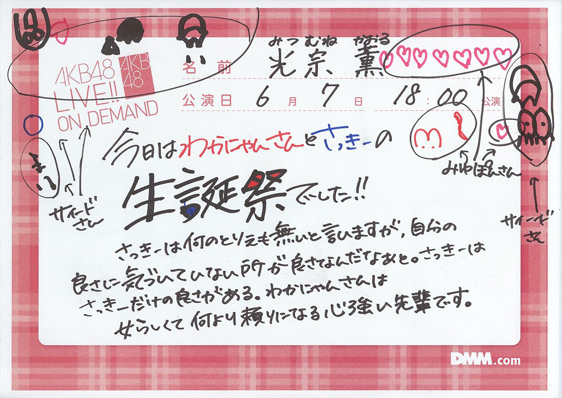 AKB48
LIVE!!
ON DEMAND
AKB
48
みつむね かおる
名前 光宗 薫
公演日 6月 7日 18:00 公演
今日はわかにゃんさんとさっきーの
生誕祭でした!!
みゃぽんさん
サイードさん
サイードさん
さっきーは何のとりえも無いと言いますが、自分の
良さに気づいていない所が良さなんだなあと。さっきーは
さっきーだけの良さがある。わかにゃんさんは
女らしくて何より頼りになる心強い先輩です。
DMM.com